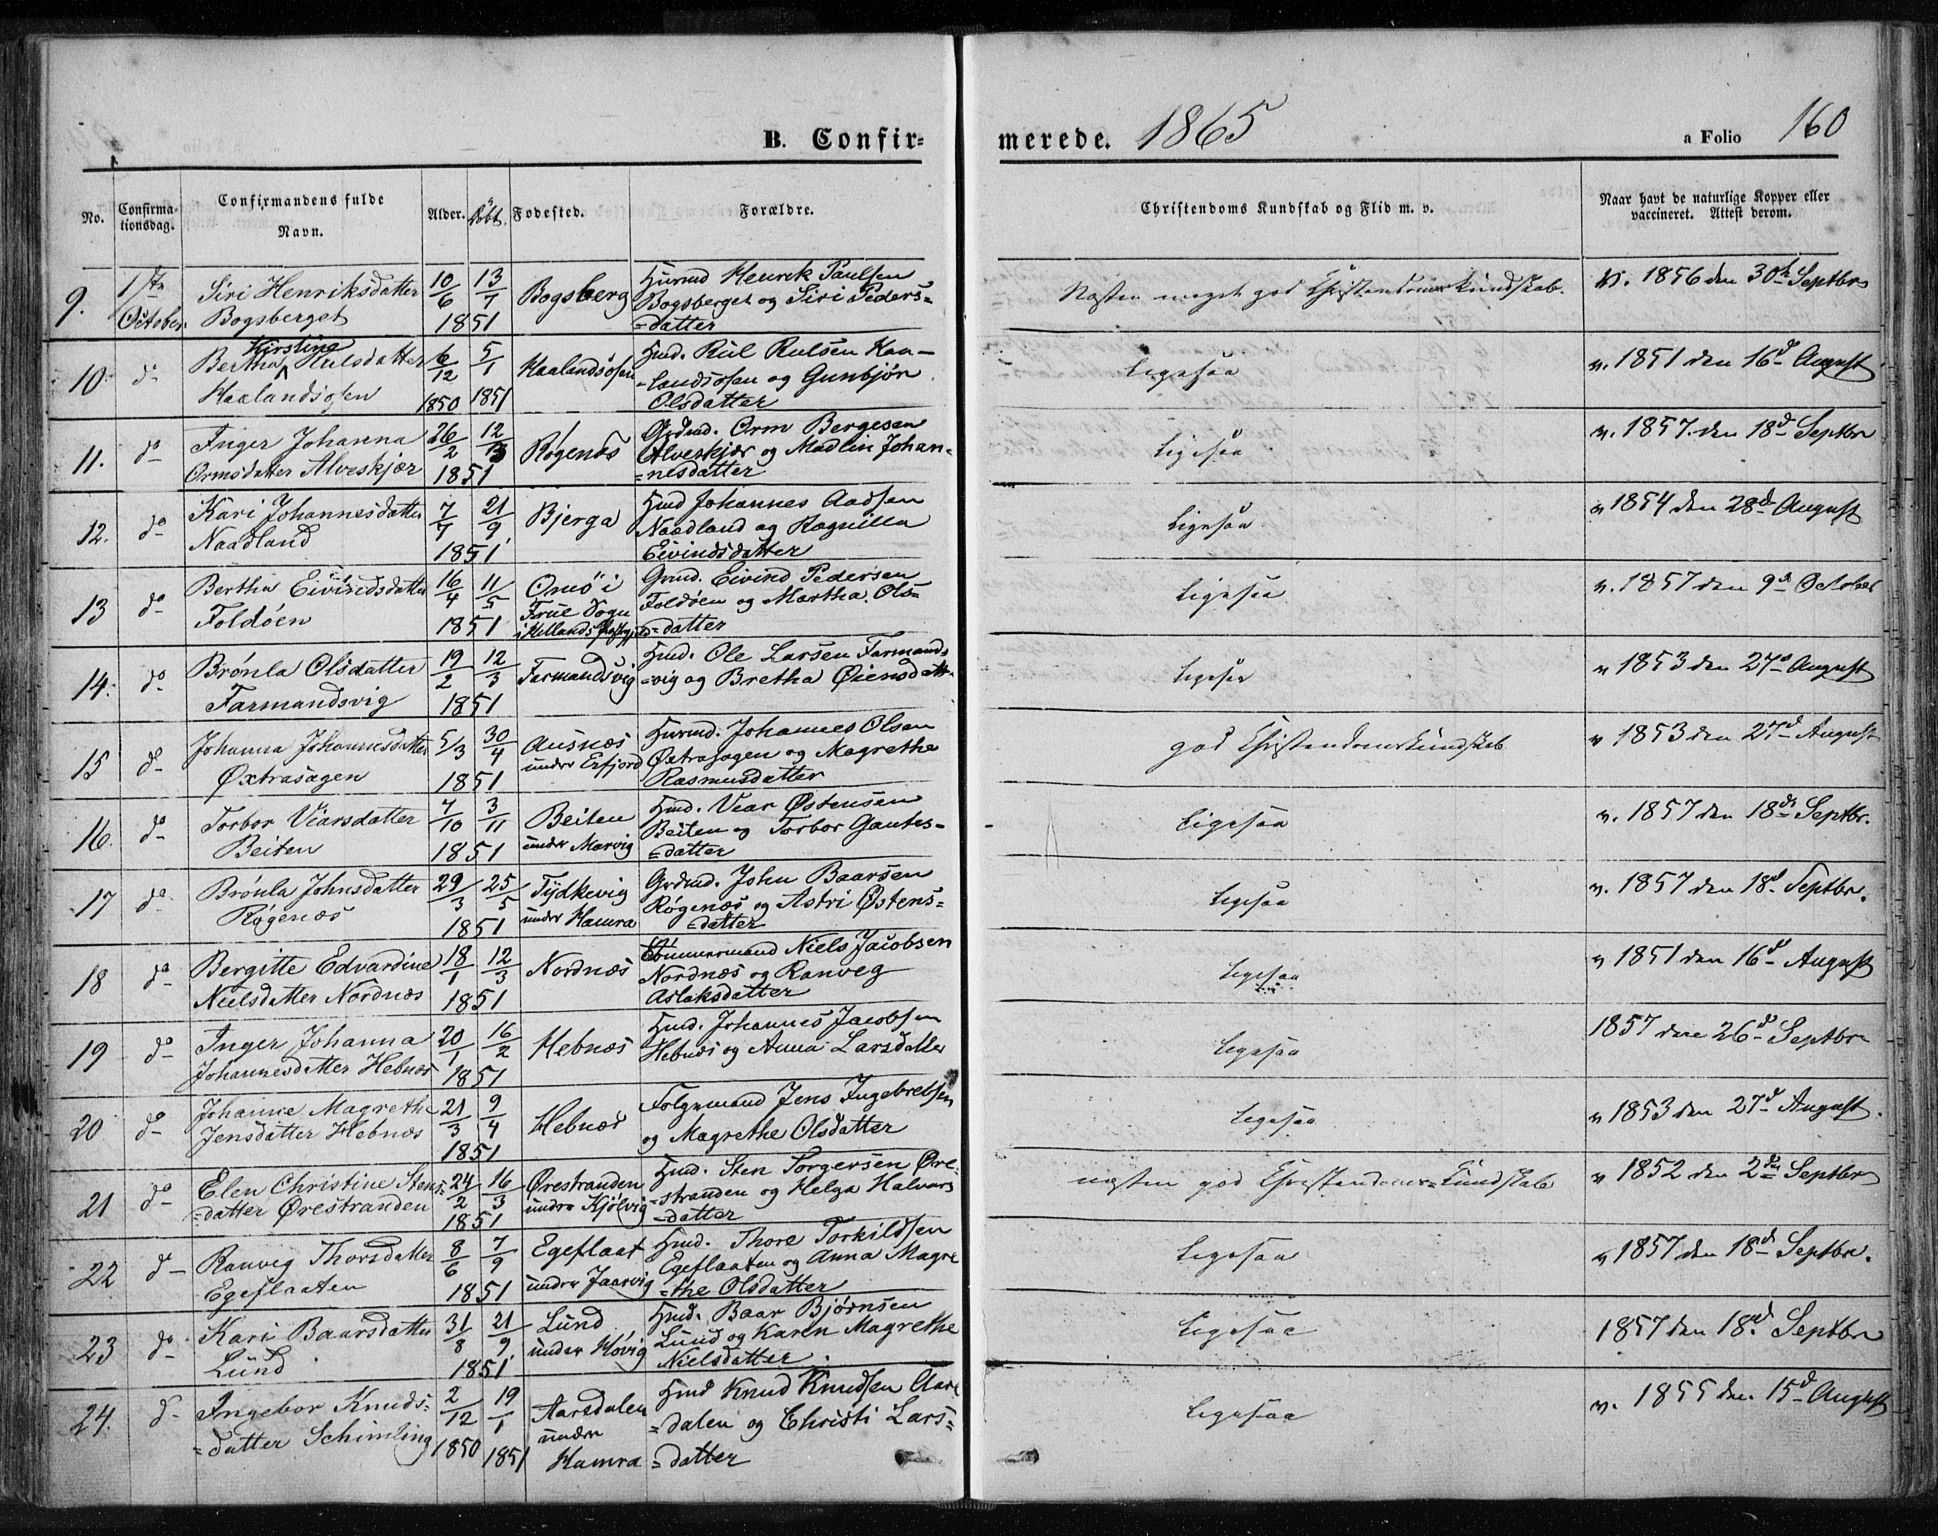 B. Confir-
merede. 1865
a Folio 160
No.
Confirma-
tionsdag.
Confirmandens fulde
Navn.
Alder.
Døbt.
Fødested.
Forældre.
Christendoms Kundskab og Flid m. v.
Naar havt de naturlige Kopper eller
vaccineret. Attest derom.
9. 1ste October. Siri Henriksdatter 10/6 13/7 Bogsberg Huusmd Henrik Paulsen
Bogsberget 1851 Bogsberget og Siri Peders-
=datter
Næsten meget god Christendomskundskab. v. 1856 den 30te Septbr
10 do Bertha Kirstine Rulsdatter 6/12 5/1 Kaalandsosen Hmd. Rul Rulsen Kaa-
Kaalandsosen 1850 1851 -landsosen og Gunbjør
Olsdatter
Ligesaa v. 1851 den 16d August
11. do Inger Johanna 26/2 12/3 Røgenæs Grdmd. Orm Bergesen
Ormsdatter Alveskjær 1851 Alveskjær og Madlin Johan-
=nesdatter
Ligesaa v. 1857. den 18d Septbr
12. do Kari Johannesdatter 7/7 21/9 Bjerga Hmd Johannes Aadsen
Naadland 1851 Naadland og Ragnilla
Eivindsdatter
Ligesaa v 1854 den 28d August
13 do Bertha Eivindsdatter 16/4 11/5 Omø i Grmd. Eivind Pedersen
Foldøen 1851 Frue Sogn Foldøen og Martha Ols-
i Hellands =datter
Ligesaa v. 1857 den 9d October
14. do Brønla Olsdatter 19/2 12/3 Farmandsvig Hmd. Ole Larsen Farmands
Farmandsvig 1851 =vig og Bretha Øiensdatt.
Ligesaa v 1853 den 27d August
15 do Johanna Johannesdatter 5/3 30/4 Ausnæs Huusmd. Johannes Olsen
Øxtrasagen 1851 under Erfjord Øxtrasagen og Magrethe
Rasmusdatter
god Christendomskundskab v 1853 den 27d August
16. do Torbor Viarsdatter 7/10 3/11 Beiten Hmd. Vear Østensen
Beiten 1851 under Marvig Beiten og Torbor Gautes-
=datter
Ligesaa v. 1857 den 18de Septbr.
17 do Brønla Johnsdatter 29/3 25/5 Tydkevig Grdmd. John Baarsen
Røgenæs 1851 under Hamra Røgenæs og Astri Østens-
=datter
Ligesaa v. 1857 den 18d Septbr.
18 do Bergitte Edvardine 18/1 12/3 Nordnæs Tømmermand Niels Jacobsen
Nielsdatter Nordnæs 1851 Nordnæs og Ranveg
Aslaksdatter
Ligesaa v 1851 den 16d August
19 do Inger Johanna 20/1 16/2 Hebnæs Hmd. Johannes Jacobsen
Johannesdatter Hebnæs 1851 Hebnæs og Anna Larsdatter
Ligesaa 1857 den 26d Septbr
20 do Johanne Magrethe 21/3 9/4 Hebnæs Folgemand Jens Ingebretsen
Jensdatter Hebnæs 1851 og Magrethe Olsdatter
Ligesaa v 1853 den 27d August.
21 do Elen Christine Stens- 24/2 16/3 Ørestranden Hmd. Sten Torgersen Øre-
=datter Ørestranden 1851 under Kjølvig =stranden og Helga Halvars
=datter
næsten god Christendoms=Kundskab v 1852 den 2den Septbr
22 do Ranveig Thorsdatter 8/6 7/9 Egeflaat Hmd. Thore Torkildsen
Egeflaaten 1851 under Jaarvig Egeflaaten og Anna Magre
=the Olsdatter
Ligesaa v 1857 den 18d Septbr.
23 do Kari Baarsdatter 31/8 21/9 Lund Hmd. Baar Bjørnsen
Lund 1851 under Høvig Lund og Karen Magrethe
Nielsdatter.
Ligesaa 1857 den 18d Septbr
24. do Ingebor Knuds= 2/12 19/1 Aarsdalen Hmd Knud Knudsen Aars
=datter Schimling 1850 1851 under =dalen og Christi Lars=
Hamra =datter
Ligesaa v. 1855 den 15d August